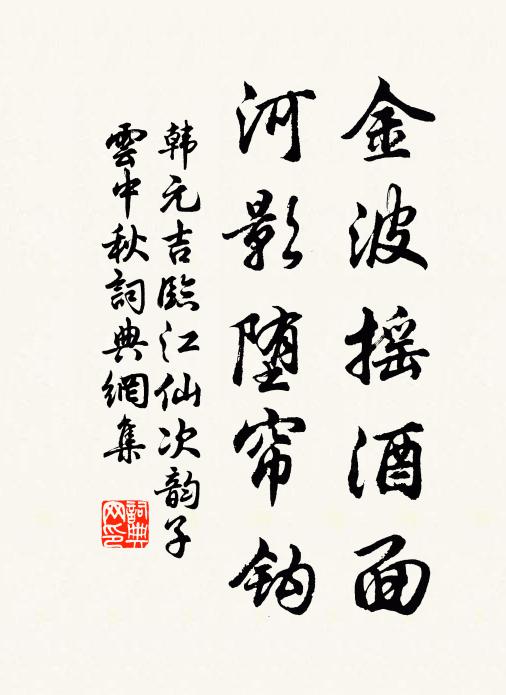 金波摇酒面
河影堕帘钩
韩元吉臨江仙次韵子
雲中秋詞典網集
詞典网印